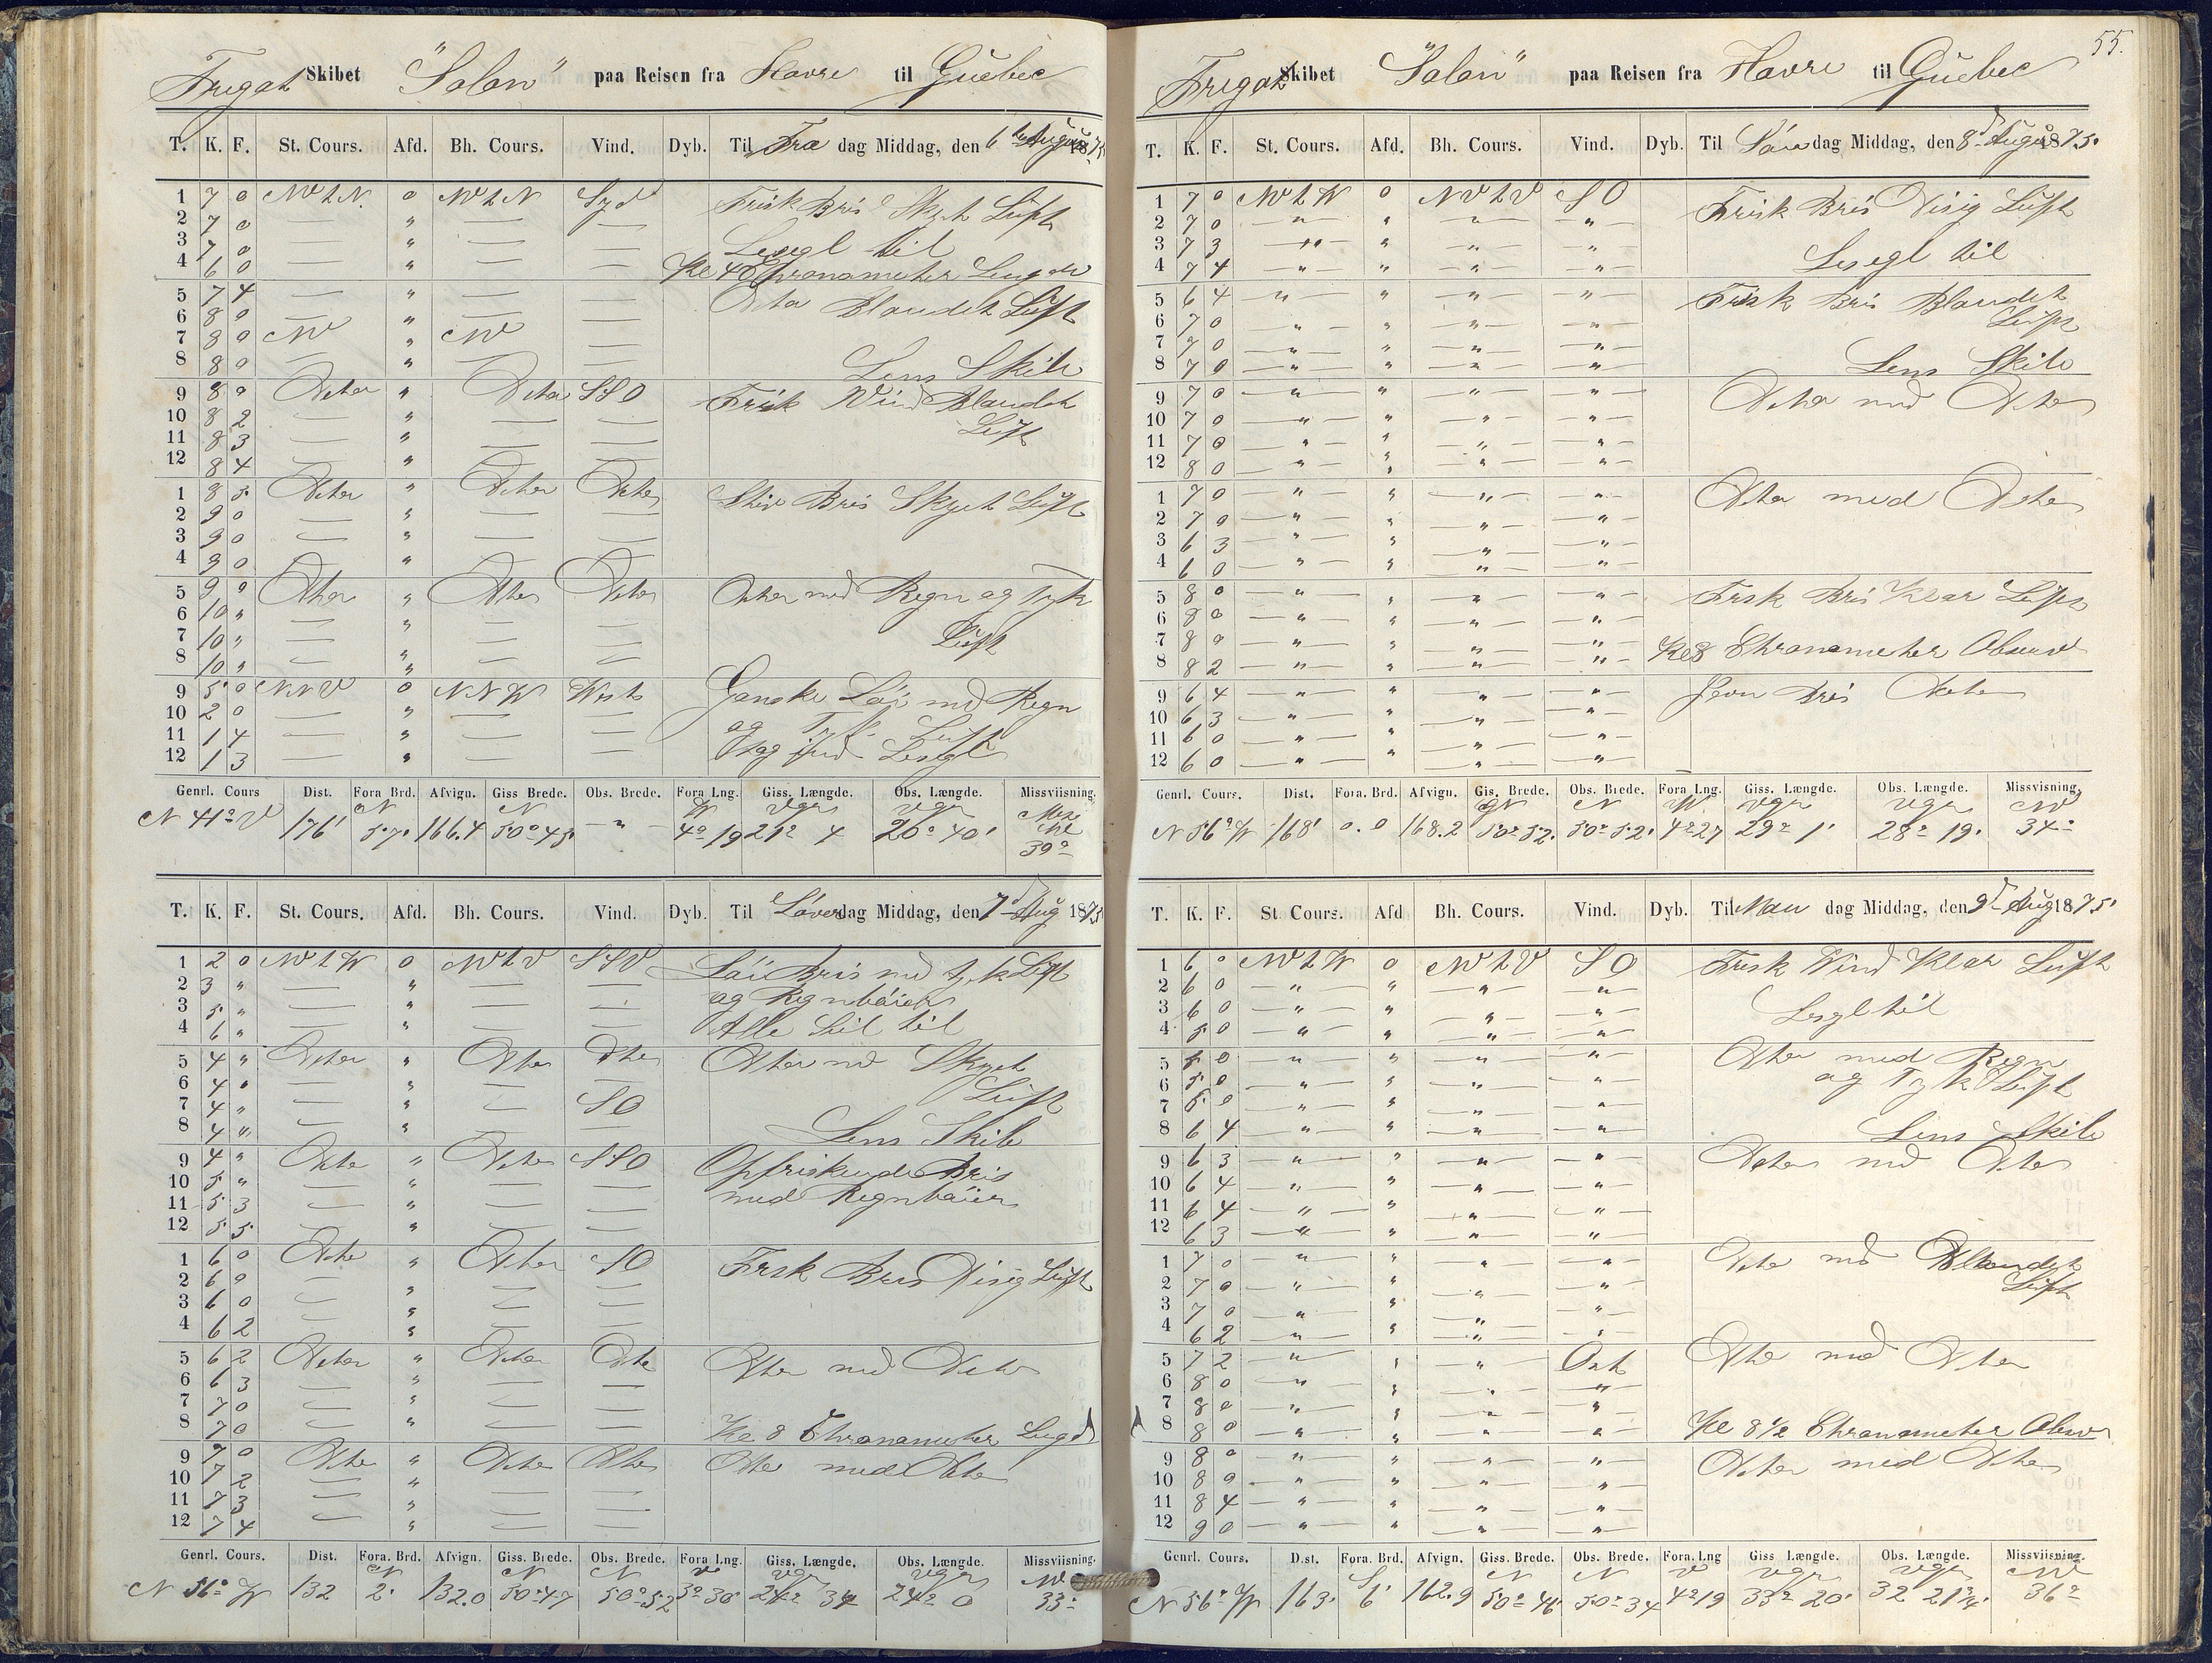 Fregat Skibet "Solon" paa Reisen fra Havre til Quebec
T. K. F. St. Cours. Afd. Bh. Cours. Vind. Dyb. Til Fre dag Middag, den 6 August 1875
1 7 0 NWtN. 0 NWtN Syd Frisk Bris Skyet Luft
2 7 0 — " — —
3 7 0 — " — — Lesegl til
4 6 0 — " — — Kl 4 Chronometer Lengde
5 7 4 — " — — Dito Blandet Luft
6 8 0 — " — —
7 8 0 NW " NW —
8 8 0 — " — — Lens Skib
9 8 0 Dito " Dito SSO Frisk Vind Blandet
10 8 2 — " — — Luft
11 8 3 — " — —
12 8 4 — " — —
1 8 5 Dito " Dito Dito Stiv Bris Skyet Luft
2 9 0 — " — —
3 9 0 — " — —
4 9 0 — " — —
5 9 0 Dito " Dito Dito Dito med Regn og Tyk
6 10 " — " — —
7 10 " — " — — Luft
8 10 " — " — —
9 5 0 NNV 0 NNW West Ganske Løi med Regn
10 2 0 — " — — og Tyk Luft
11 1 4 — " — — Tog ind Lesegl
12 1 3 — " — —
Genrl. Cours Dist. Fora Brd. Afvign. Giss Brede. Obs. Brede. Fora Lng. Giss. Længde. Obs. Længde. Missviisning.
N 41° V 176' N 57' 166.4 N 50° 45' - " - W 4° 19 Vgr 21° 4 Vgr 20° 40' 39°
T. K. F. St. Cours. Afd. Bh. Cours. Vind. Dyb. Til Løverdag Middag, den 7 Aug 1875
1 2 0 NWtW 0 NWtV SSV Løi Bris med tyk Luft
2 3 " — " — — og Regnbøier
3 5 " — " — —
4 6 " — " — — Alle Seil til
5 4 " Dito " Dito Dito Dito med Skyet
6 4 " — " — — Luft
7 4 " — " — SO
8 4 " — " — — Lens Skib
9 4 " Dito " Dito SSO Opfriskende Bris
10 5 " — " — — med Regnbøier
11 5 3 — " — —
12 5 5 — " — —
1 6 0 Dito " Dito SO Frisk Bris Disig Luft
2 6 0 — " — —
3 6 0 — " — —
4 6 2 — " — —
5 6 2 Dito " Dito Dito Dito med Dito
6 6 3 — " — —
7 7 0 — " — —
8 7 0 — " — — Kl 8 Chronometer Lengd
9 7 0 Dito " Dito Dito Dito med Dito
10 7 2 — " — —
11 7 3 — " — —
12 7 4 — " — —
Genrl. Cours. Dist. Fora. Brd. Afvign. Giss. Brede. Obs. Brede. Fora Lng. Giss. Længde. Obs. Længde. Missviisning.
N 56° W 132 N 2' 132.0 N 50° 47 N 50° 52 V 3° 30' Vgr 24° 34 Vgr 24° 0 NW 33°
55.
Fregat Skibet "Solon" paa Reisen fra Havre til Quebec
T. K. F. St. Cours. Afd. Bh. Cours. Vind. Dyb. Til Søn dag Middag, den 8 August 1875.
1 7 0 NWtW 0 NVtV SO Frisk Bris Disig Luft
2 7 0 — " — " — " — — " —
3 7 3 — " — " — " — — " — Lesegl til
4 7 4 — " — " — " — — " —
5 6 4 — " — " — " — — " — Frisk Bris Blandet
6 7 0 — " — " — " — — " — Luft
7 7 0 — " — " — " — — " —
8 7 0 — " — " — " — — " — Lens Skib
9 7 0 — " — " — " — — " — Dito med Dito
10 7 0 — " — " — " — — " —
11 7 0 — " — " — " — — " —
12 8 0 — " — " — " — — " —
1 7 0 — " — " — " — — " — Dito med Dito
2 7 0 — " — " — " — — " —
3 6 3 — " — " — " — — " —
4 6 0 — " — " — " — — " —
5 8 0 — " — " — " — — " — Frisk Bris Klar Luft
6 8 0 — " — " — " — — " —
7 8 0 — " — " — " — — " — Kl 8 Chronometer Observ
8 8 2 — " — " — " — — " —
9 6 4 — " — " — " — — " — Jevn Bris Dito
10 6 3 — " — " — " — — " —
11 6 0 — " — " — " — — " —
12 6 0 — " — " — " — — " —
Genrl. Cours. Dist. Fora. Brd. Afvign. Gis. Brede. Obs. Brede. Fora Lng. Giss. Længde. Obs. Længde. Missviisning
N 56° W 168' 0.0 168.2 N 50° 52' N 50° 52' W 4° 27 Vgr 29° 1' Vgr 28° 19' NW 34°
T. K. F. St Cours. Afd Bh. Cours. Vind. Dyb. Til Man dag Middag, den 9 Aug 1875
1 6 0 NWtW 0 NWtV SO Frisk Vind Klar Luft
2 6 0 — " — " — " — — " —
3 6 0 — " — " — " — — " — Lesgl til
4 5 0 — " — " — " — — " —
5 5 0 — " — " — " — — " — Dito med Regn
6 5 0 — " — " — " — — " — og Tyk Luft
7 5 0 — " — " — " — — " —
8 6 4 — " — " — " — — " — Lens Skib
9 6 3 — " — " — " — — " — Dito med Dito
10 6 4 — " — " — " — — " —
11 6 4 — " — " — " — — " —
12 6 3 — " — " — " — — " —
1 7 0 — " — " — " — — " — Dito med Blandet
2 7 0 — " — " — " — — " — Luft
3 7 0 — " — " — " — — " —
4 6 2 — " — " — " — — " —
5 7 2 — " — " — " — Ost Dito med Dito
6 8 0 — " — " — " — — " —
7 8 0 — " — " — " — — " —
8 8 0 — " — " — " — — " — Kl 8 1/2 Chronometer Observ
9 8 0 — " — " — " — — " — Dito med Dito
10 8 0 — " — " — " — — " —
11 8 4 — " — " — " — — " —
12 9 0 — " — " — " — — " —
Genrl. Cours. Dist. Fora. Brd. Afvign. Giss. Brede. Obs. Brede. Fora. Lng Giss Længde. Obs. Længde. Missviisning.
N 56° W 163' S 6' 162.9 N 50° 46' N 50° 34 V 4° 19 Vgr 33° 20' Vgr 32 21 1/4' NW 36°